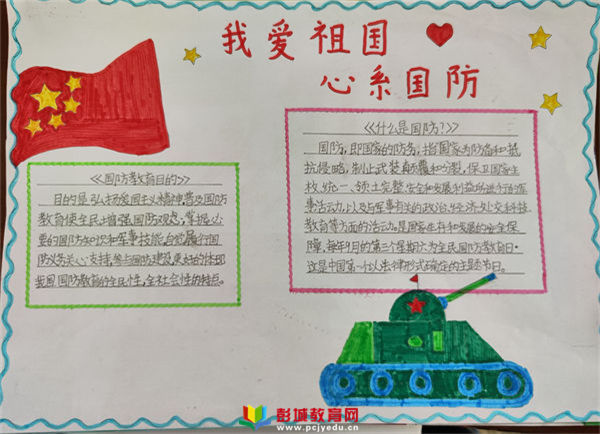 我爱祖国
心系国防
《什么是国防?》
国防,即国家的防务,指国家为防备和抵
抗侵略,制止武装颠覆和分裂,保卫国家主
权、统一、领土完整、安全和发展利益所进行的军
事活动,以及与军事有关的政治、经济、外交、科技、
教育等方面的活动。是国家生存和发展的安全保
障,每年9月的第三个星期六为全民国防教育日。
这是中国第一个以法律形式确定的主题节日。
《国防教育目的》
目的是弘扬爱国主义精神,普及国防
教育使全民增强国防观念,掌握必
要的国防知识和军事技能,自觉履行国
防义务关心支持、参与国防建设,更好的体现
我国国防教育的全民性,全社会性的特点。
彭城教育网
www.pcjyedu.cn